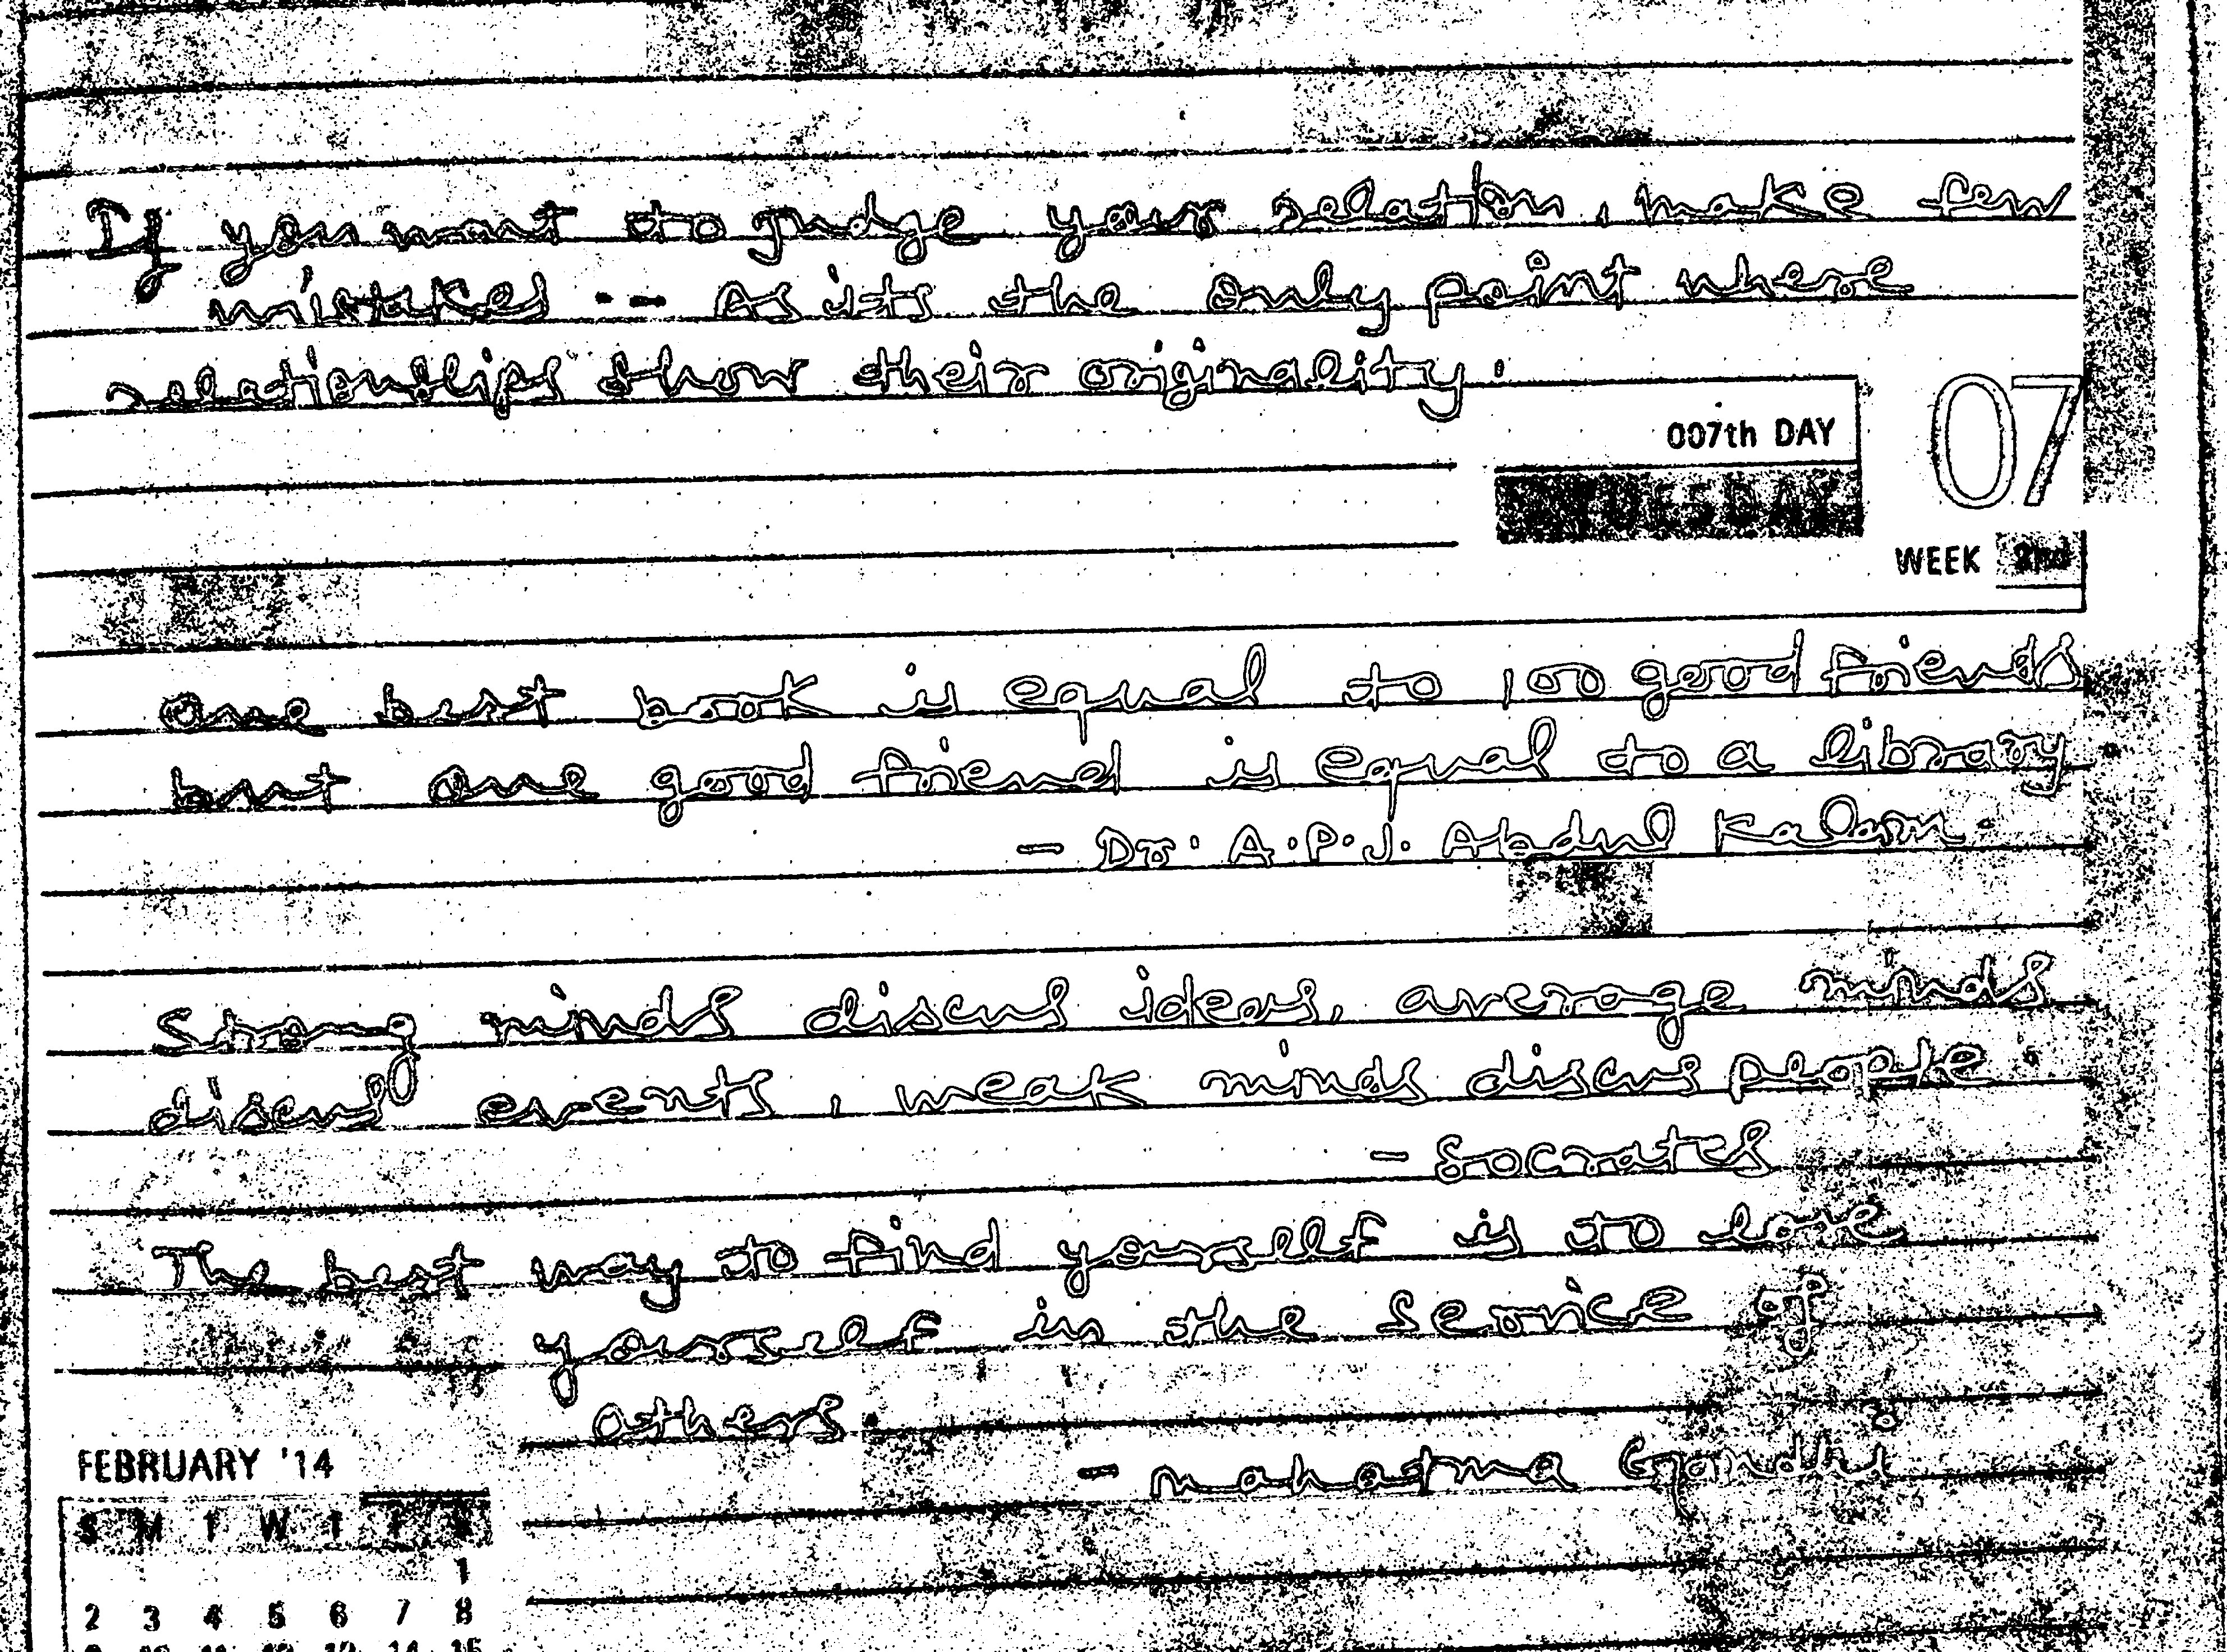 If you want to judge your relation, make few
mistakes -- As its the only point where
relationships show their originality.
007th DAY
07
TUESDAY
WEEK 2nd
One best book is equal to 100 good friends
but one good friend is equal to a library
- Dr. A.P.J. Abdul Kalam.
Strong minds discus ideas, average minds
discus events, weak minds discus people.
- Socrates
The best way to find yourself is to lose
yourself in the service of
others.
- mahatma Gandhi
FEBRUARY '14
S M T W T F S
1
2 3 4 5 6 7 8
9 10 11 12 13 14 15